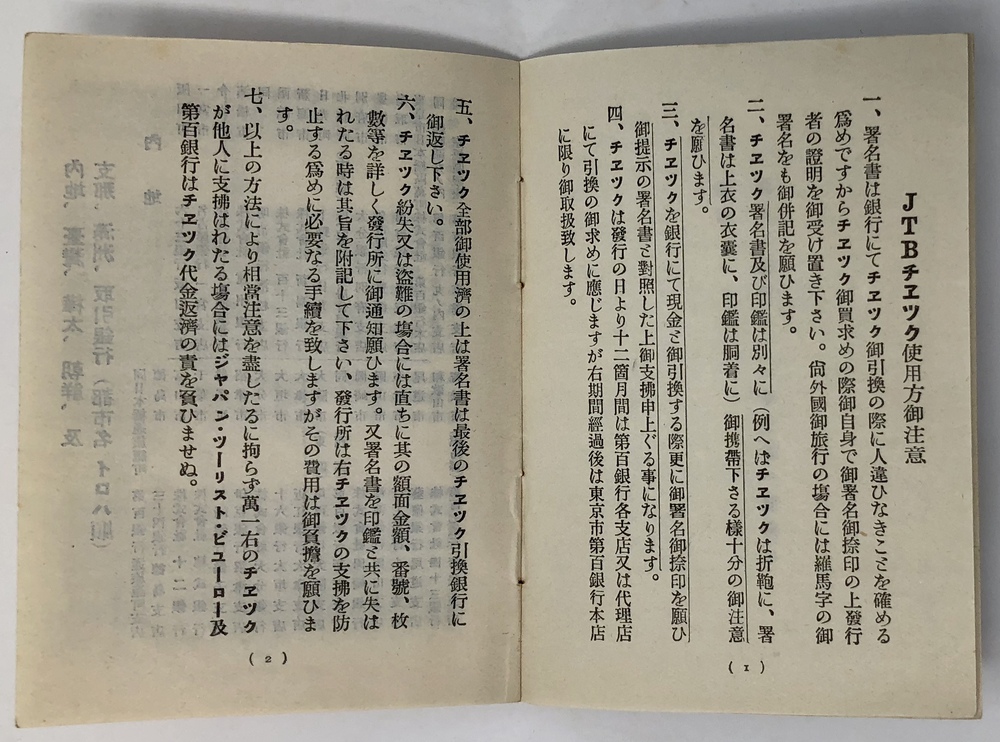 JTBチヱツク使用方御注意
一、署名書は銀行にてチヱツク御引換の際に人違ひなきことを確める
爲めですからチヱツク御買求めの際御自身で御署名御捺印の上發行
者の證明を御受け置き下さい。尙外國御旅行の場合には羅馬字の御
署名をも御併記を願ひます。
二、チヱツク署名書及び印鑑は別々に（例へばチヱツクは折鞄に、署
名書は上衣の衣嚢に、印鑑は胴着に）御携帶下さる樣十分の御注意
を願ひます。
三、チヱツクを銀行にて現金と御引換する際更に御署名御捺印を願ひ
御提示の署名書と對照した上御支拂申上ぐる事になります。
四、チヱツクは發行の日より十二箇月間は第百銀行各支店又は代理店
にて引換の御求めに應じますが右期間經過後は東京市第百銀行本店
に限り御取扱致します。
(1)
五、チヱツク全部御使用濟の上は署名書は最後のチヱツク引換銀行に
御返し下さい。
六、チヱツク紛失又は盜難の場合には直ちに其の額面金額、番號、枚
數等を詳しく發行所に御通知願ひます。又署名書を印鑑と共に失は
れたる時は其旨を附記して下さい、發行所は右チヱツクの支拂を防
止する爲めに必要なる手續を致しますがその費用は御負擔を願ひま
す。
七、以上の方法により相當注意を盡したるに拘らず萬一右のチヱツク
が他人に支拂はれたる場合にはジャパン・ツーリスト・ビユーロー及
第百銀行はチヱツク代金返濟の責を負ひませぬ。
(2)
內地、臺灣、樺太、朝鮮、及
支那、滿洲、取引銀行（都市名イロハ順）
內地